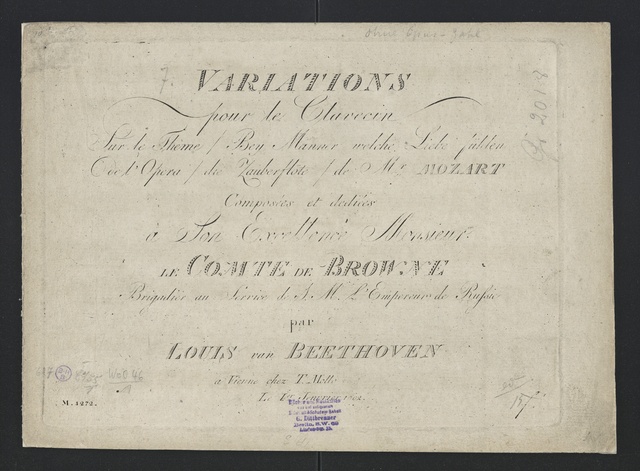 ohne Opus-Zahl
7.
VARIATIONS
pour le Clavecin
Sur le Thême / Bey Männer welche Liebe fühlen
de l'Opera / die Zauberflöte / de Mr. MOZART
Composées et dediées
à Son Excellence Monsieur
LE COMTE DE BROWNE
Brigadier au Service de S. M. L'Empereur de Russie
par
LOUIS van BEETHOVEN
a Vienne chez T. Mollo
Le 1er Janvier 1802.
WoO 46
M.1272.
Berlin S.W. 68
157